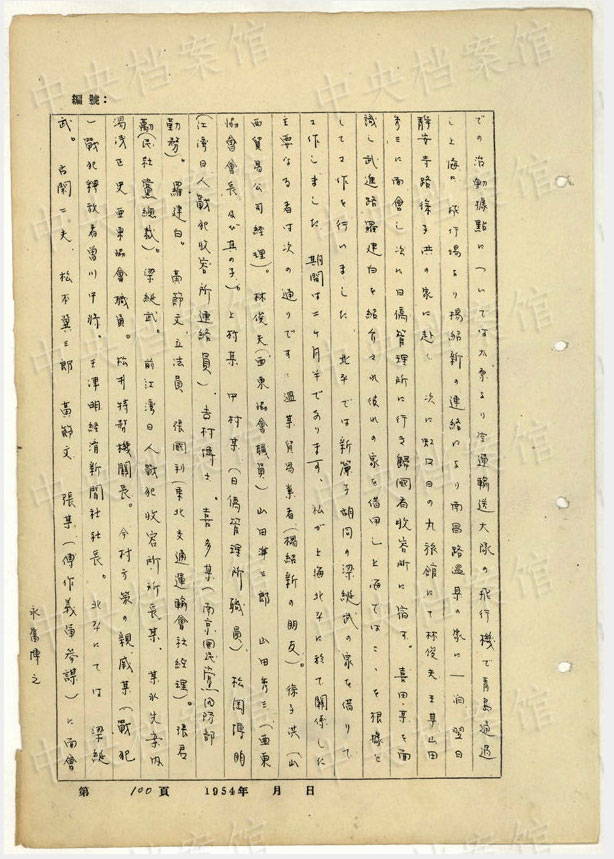 編號：
での活動據點については太原より空運輸送大隊の飛行機で青島通過
し上海に 飛行場より楊紹新の連絡により南昌路温某の家に一泊 翌日
静安寺路徐子洪の家に赴く 次に 日の丸旅館にて林俊夫 王 某山田
秀三に面會し次に日僑管理所に行き歸國者收容所に宿す。喜田 某を面
識し武進路羅建白を紹介され彼れの家を借用し上海ではこゝを根據と
して工作を行いました。北平では新簾子胡同の梁綖武の家を借りて
工作しました 期間は二ヶ月半であります。私が上海北平に於て關係した
主要なる者は次の通りです：温某貿易業者（楊紹新の朋友）。徐子洪（山
西貿易公司経理）。林俊夫（西東協會職員）山田 三郎 山田秀三（亜東
協會會長 及び其の子）。上村某 甲村某（日僑管理所職員）松岡 明
（江湾日人戰犯收容所連絡員）。吉村博士。喜多某（南京國民黨國防部
勤務）。羅建白。黃節文 立法員 張國利（東北交通運輸會社经理）。張君
勵（民社黨總裁）。梁綖武。前江湾日人戰犯收容所所長某、某永
亜東協會職員。 特務機關長。今村方策の親戚某（戰犯
一戰犯釋放者 中將。王津明經濟新聞社社長。北平にては 梁綖
武。古閑二夫、 三郎 黃節文 張某（傅作義軍參謀）に面會
永富博之
第 100 頁 1954年 月 日
中央档案馆